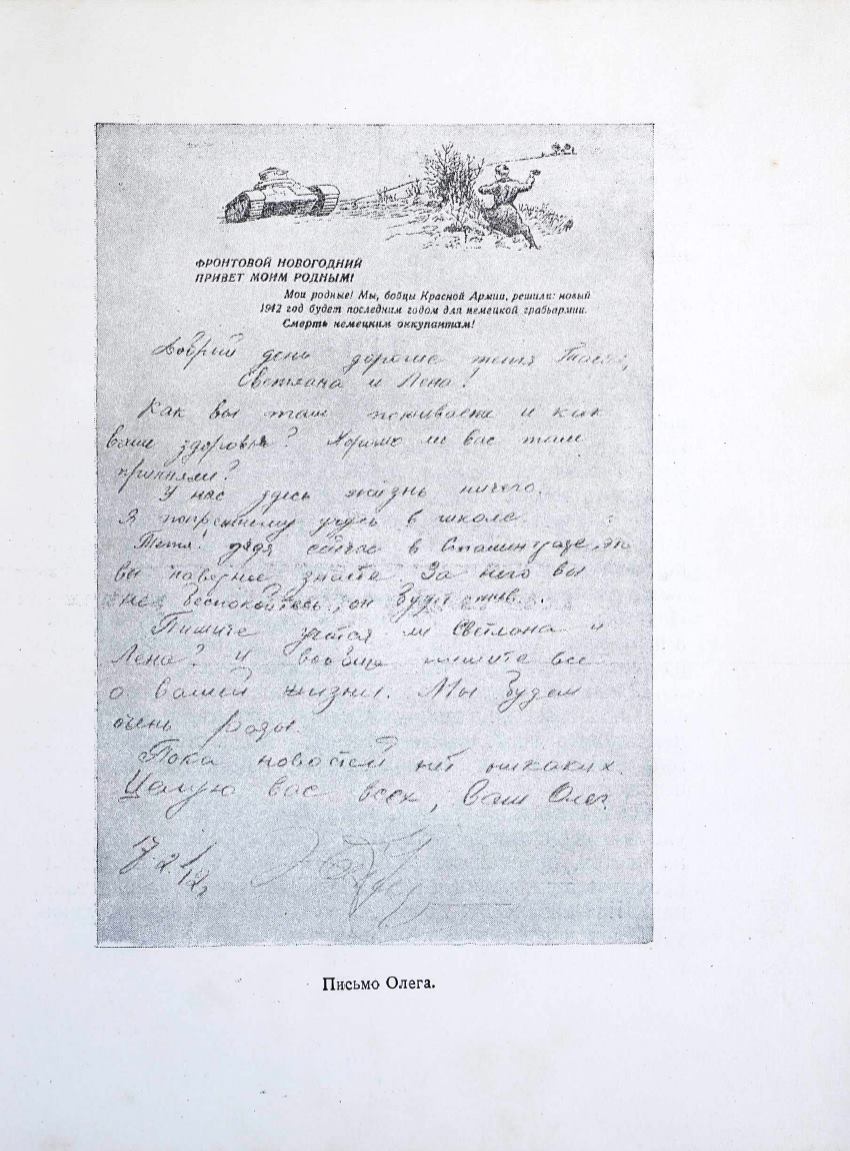 ФРОНТОВОЙ НОВОГОДНИЙ
ПРИВЕТ МОИМ РОДНЫМ!
Мои родные! Мы, бойцы Красной Армии, решили: новый
1942 год будет последним годом для немецкой грабьармии.
Смерть немецким оккупантам!
Добрый день дорогие тетя Тася,
Светлана и Лена!
Как вы там поживаете и как
ваше здоровье? Хорошо ли вас там
приняли?
У нас здесь жизнь ничего.
Я попрежнему учусь в школе.
Тетя, дядя сейчас в Сталинграде, это
вы наверное знаете. За него вы
не беспокойтесь, он будет жив.
Пишите учатся ли Светлана и
Лена? И вообще пишите все
о вашей жизни. Мы будем
очень рады.
Пока новостей нет никаких.
Целую вас всех, Ваш Олег.
Письмо Олега.